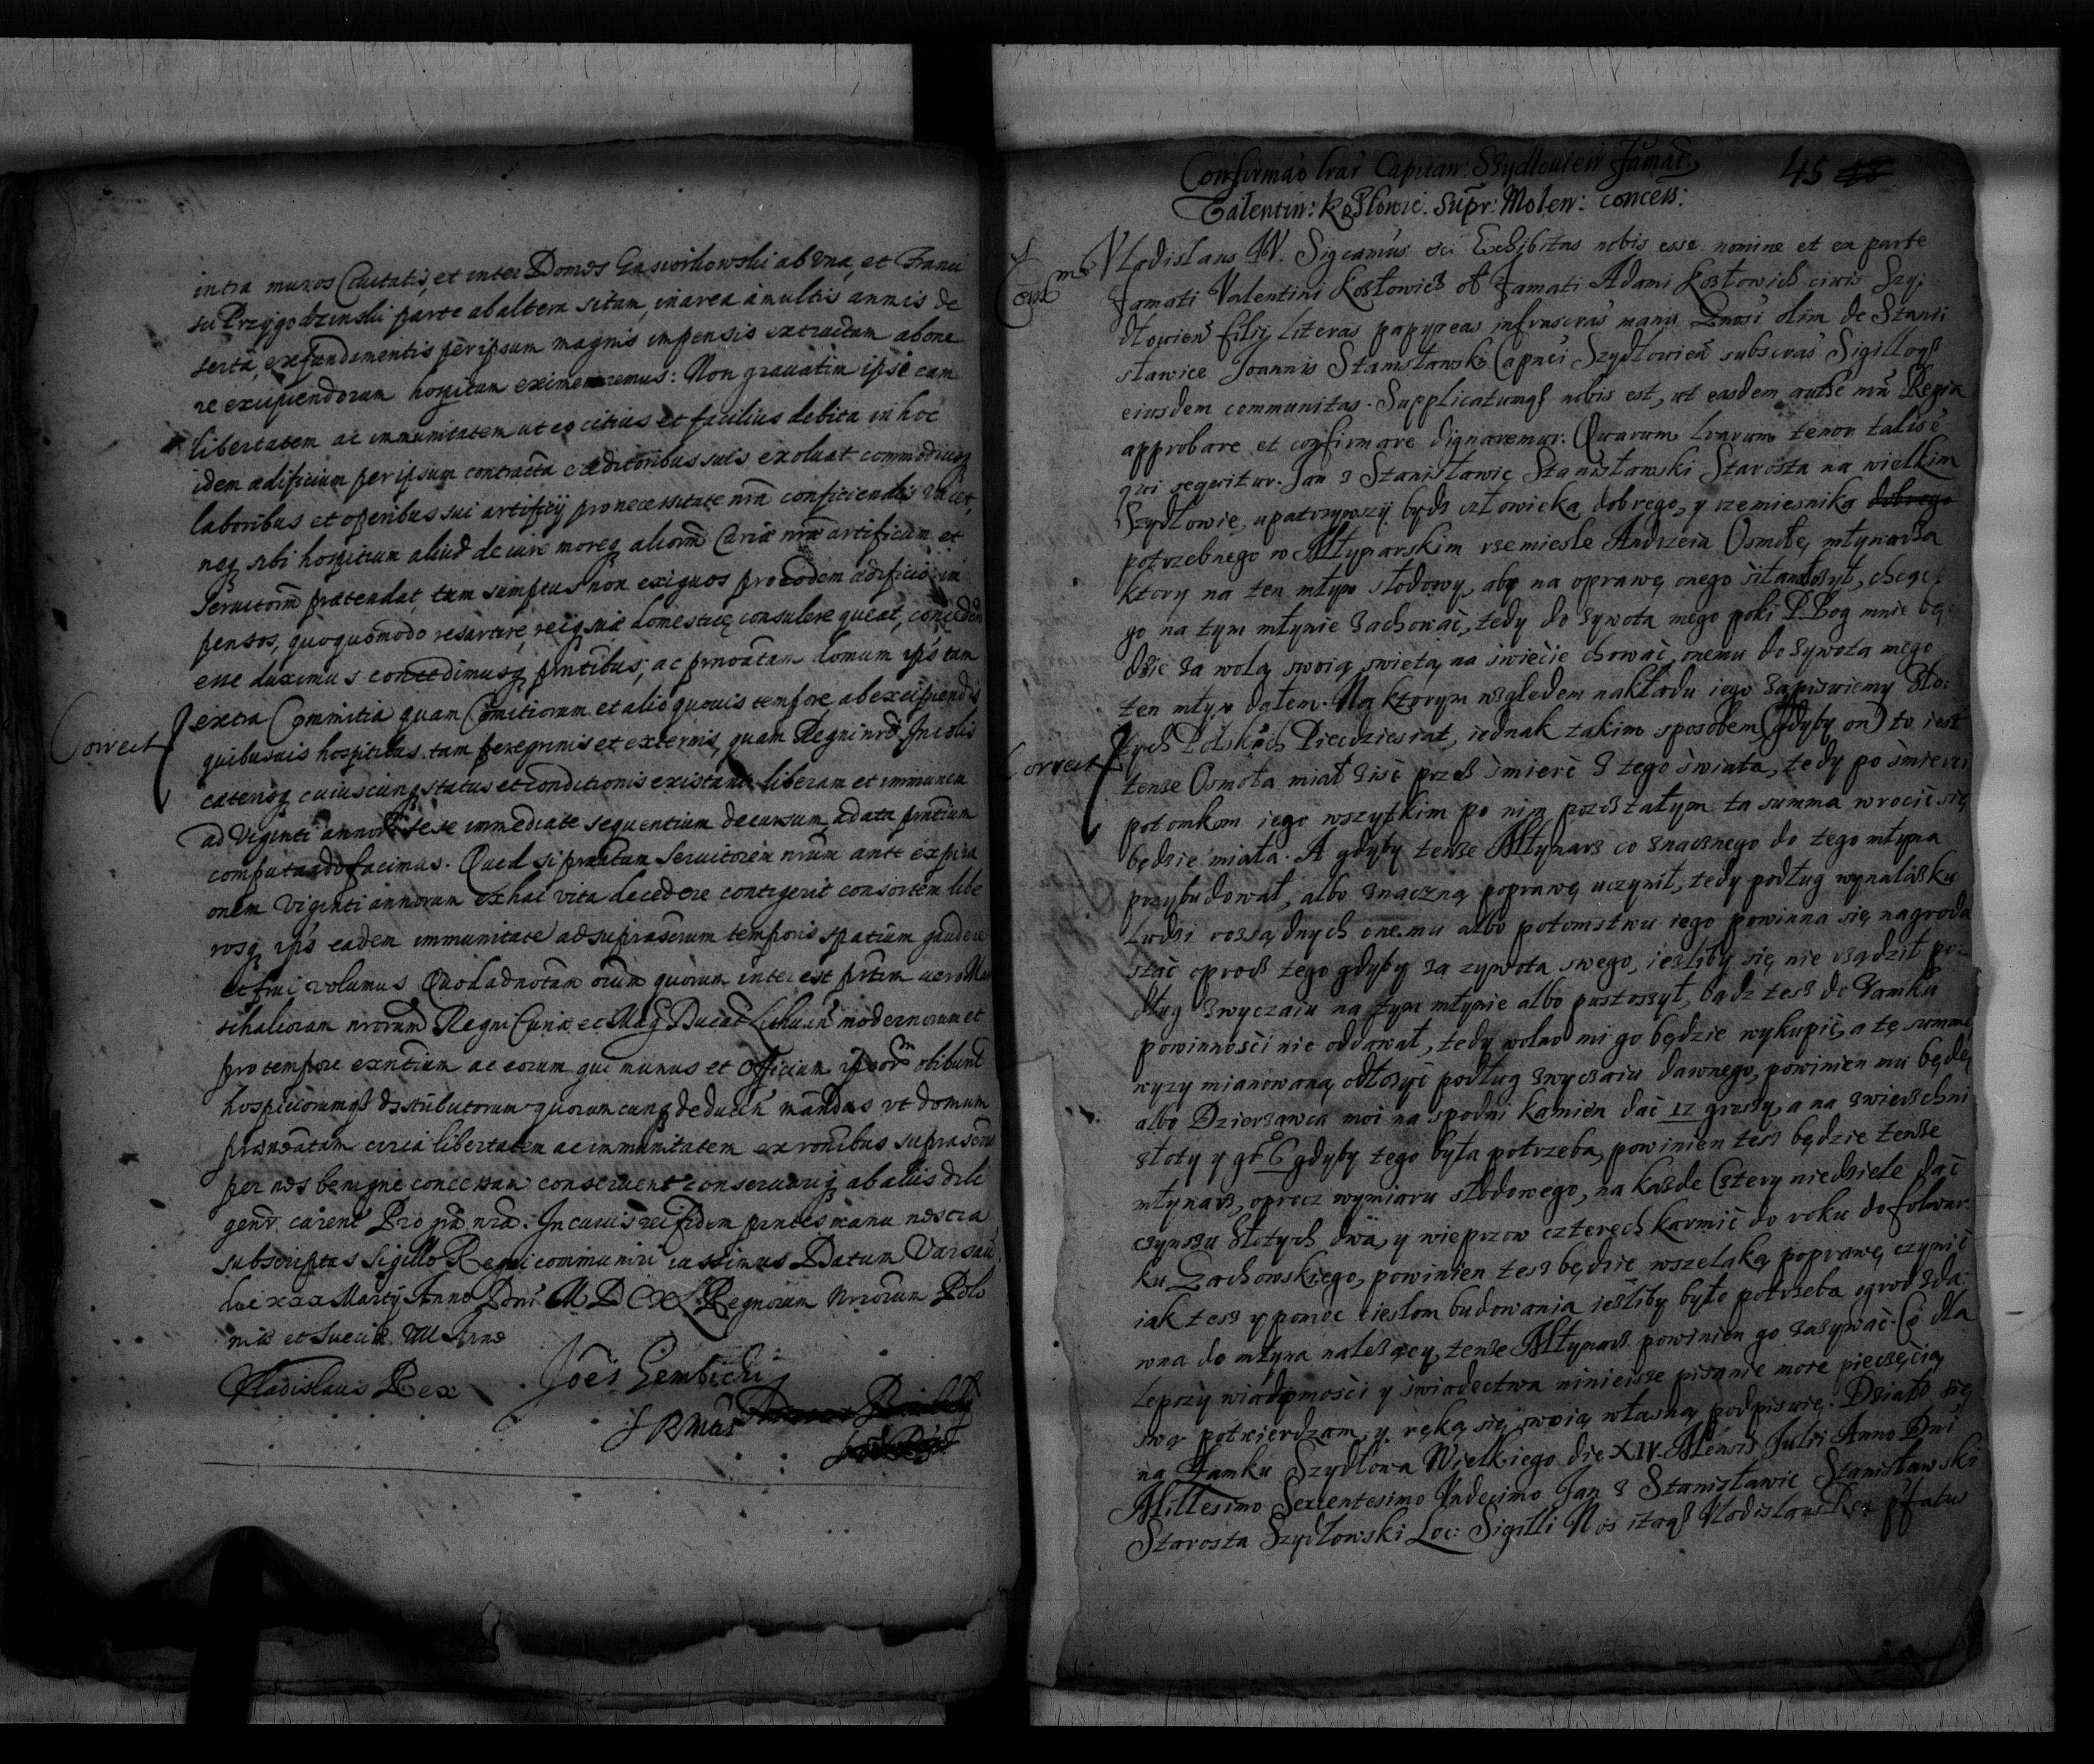 intra muros Civitatis, et inter Domos Gasiorkowski ab una, et Franci
sci Przygodzinski parte ab altera sitam, in area a multis annis de
serta, ex fundamentis per ipsum magnis impensis extructam ab one
re excipiendorum hospitum eximeremus: Non gravatim ipsi eam
libertatem ac immunitatem ut eo citius et facilius debita in hoc
idem ædificium per ipsum contracta creditoribus suis exoluat commodiusq
laboribus et operibus sui artificij pro necessitate nrã conficiendis vacet,
neq sibi hospitium aliud de iure moreq aliorm Curiæ nræ artificum et
Servitorm prætendat, tum sumptus non exiguos pro eodem ædificio im
pensos, quoquomodo resarcire, reiq suæ domesticę consulere queat, conceden
esse duximus concedimusq pntibus, ac prnoatam domum ipš tam
extra Comitia quam Comitiorum et alio quovis tempore, ab excipiendis
Correct
quibusvis hospitibus tam peregrinis et externis, quam Regni nrĩ Incolis
cæterisq cuiuscunq status et conditionis existant liberam et immunem
ad Viginti annos sese immediate sequentium decursum, a data pntium
computando facimus. Quod si prætum Servitorem nrum ante expira
onem viginti annorum ex hac vita decedere contigerit consortem libe
rosq ipš eadem immunitate ad suprascrum temporis spatium gaudere
et frui volumus Quod ad notam oium quorum interest prtim vero Mar
schalcorum nrorum Regni Curiæ et Mag Ducat Lithuen modernorum et
pro tempore exntium ac eorum qui munus et Officium ipsor obibunt
hospitiorumq distributorum quorumcunq deducen mandus ut domum
prænoatam circa libertatem ac immunitatem ex ronibus suprascris
per nos benigne concessam conservent conservariq ab aliis dili
gent curent Pro gra nra. In cuius rei fidem pntes manu nostra
subscriptas Sigillo Regni communiri iussimus Datum Varsau
die xxx Martij Anno Dni M D C XL Regnorum Nrorum Polo
niæ et Sueciæ VIII Anno
Vladislaus Rex Joes Gembicki
S R Mtis
45
Confirmao lrar Capitan: Szydlovien Famat
Valentin: Kozłowic. Supr: Molen: concess:
Vladislaus IV. Sigcamus etc Exhibitas nobis esse nomine et ex parte
Famati Valentini Kozłowicz ol Famati Adami Kozłowich civis Szy:
dłowień filij literas papyreas infrascras manu Gnosi olim de Stani
sławice Joannis Stanisławski Capnei Szydłowień subscras Sigilloq
eiusdem communitas. Supplicatumq nobis est, ut easdem authe nrã Regia
approbare et confirmare dignaremur. Quarum lrarum tenor talis e
qui sequitur. Jan z Stanisławic Stanisławski Starosta na wielkim
Szydłowie, upatrzywszy bydz człowieka dobrego, y rzemiesnika dobrego
potrzebnego w Młynarskim rzemiesle Andrzeia Osmołę młynarza
ktory na ten młyn słodowy, aby na oprawę onego się nałożył, chcąc
go na tym młynie zachować, tedy do zywota mego poki P. Bog mnie bę:
dzie za wolą swoią swiętą na świecie chować, onemu do zywota mego
ten młyn dałem. Na ktorym względem nakładu iego zapisuiemy Zło:
tych Polskich Piecdziesiat, iednak takim sposobem (gdyby on) to iest
Correct
tenze Osmoła miał zisć przez śmierć z tego świata, tedy po śmierci
potomkom iego wszytkim po nim pozostałym ta summa wrocić się
będzie miała. A gdyby tenze Młynarz co znacznego do tego młyna
przybudował, albo znaczną poprawę uczynił, tedy podług wynalasku
Ludzi rozsądnych onemu albo potomstwu iego powinna się nagroda
stać oprocz tego gdyby za zywota swego, iesliby się nie rządził po:
dług zwyczaiu na tym młynie albo pustoszył, bądz tesz do Zamku
powinności nie oddawał, tedy wolno mi go będzie wykupić, a tę summę
wyzy mianowaną odłożyć podług zwyczaiu dawnego, powinien mu będę
albo Dzierzawca moi na spodni kamien dać 12 groszy, a na zwierzchni
złoty y gr 6 gdyby tego była potrzeba, powinien tesz będzie tenze
młynarz, oprocz wymiaru słodowego, na kazde Cztery niedziele dać
czynszu Złotych dwa, y wieprzow czterech karmić do roku do folwar:
ku Zachowskiego, powinien tesz będzie wszelaką poprawę czynić
iak tesz y pomoc cieslom budowania iesliby było potrzeba ogrod zda:
wna do młyna nalezący, tenze Młynarz powinien go zazywać. Co dla
Lepszy wiadomości y świadectwa niniejsze pisanie moie pieczęcią
swą potwierdzam, y ręką się swoią własną podpisuię. Działo się
na Zamku Szydłowa Wielkiego die XIV. Mensis Julii Anno Dni
Millesimo Sexcentesimo Undecimo Jan z Stanisławic Stanisławski
Starosta Szydłowski Loc: Sigilli Nos itaq Vladislaus Rex pfatus